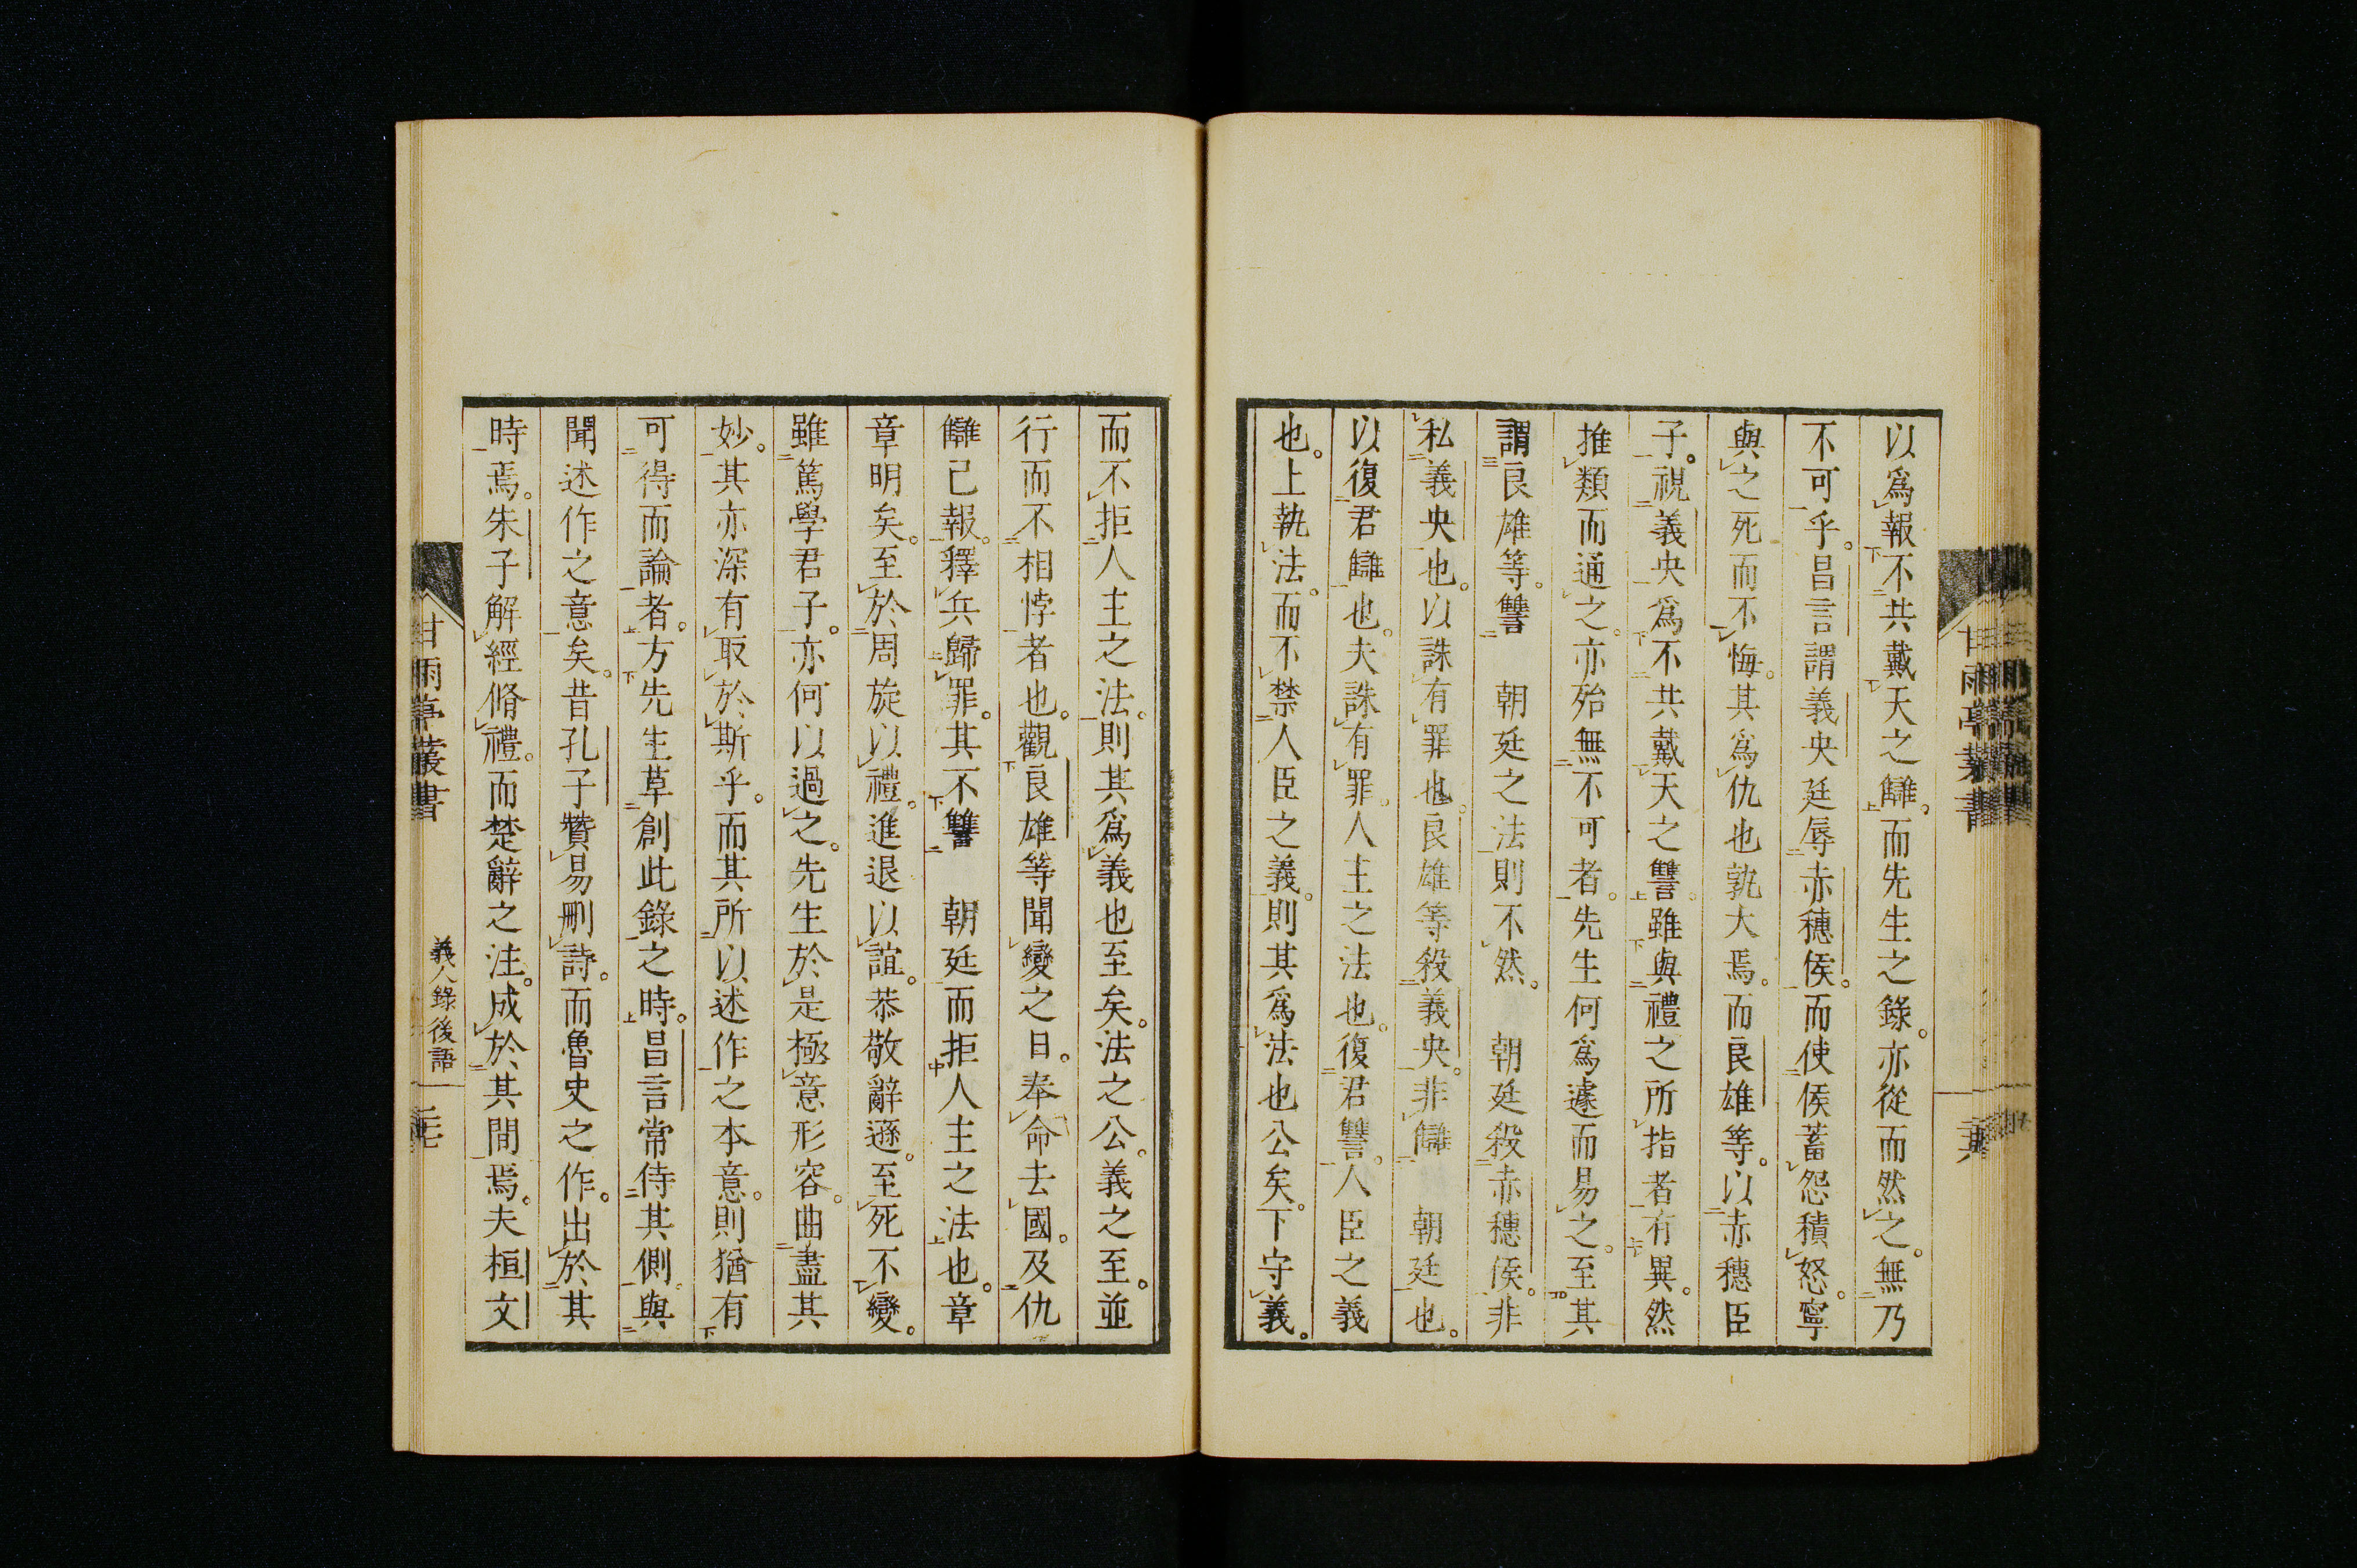 以爲報不共戴天之讎。而先生之錄。亦從而然之。無乃
不可乎。昌言謂義央廷辱赤穗侯。而使侯蓄怨積怒。寧
與之死而不悔。其爲仇也孰大焉。而良雄等。以赤穗臣
子。視義央爲不共戴天之讐。雖與禮之所指者有異。然
推類而通之。亦殆無不可者。先生何爲遽而易之。至其
謂良雄等。讐 朝廷之法則不然。 朝廷殺赤穗侯。非
私義央也。以誅有罪也。良雄等殺義央。非讎 朝廷也。
以復君讎也。夫誅有罪。人主之法也。復君讐。人臣之義
也。上執法。而不禁人臣之義。則其爲法也公矣。下守義。
甘雨亭叢書
而不拒人主之法。則其爲義也至矣。法之公。義之至。並
行而不相悖者也。觀良雄等聞變之日。奉命去國。及仇
讎已報。釋兵歸罪。其不讐 朝廷而拒人主之法也。章
章明矣。至於周旋以禮。進退以誼。恭敬辭遜。至死不變。
雖篤學君子。亦何以過之。先生於是極意形容。曲盡其
妙。其亦深有取於斯乎。而其所以述作之本意。則猶有
可得而論者。方先生草創此錄之時。昌言常侍其側。與
聞述作之意矣。昔孔子贊易刪詩。而魯史之作。出於其
時焉。朱子解經脩禮。而楚辭之注。成於其間焉。夫桓文
甘雨亭叢書
義人錄後語